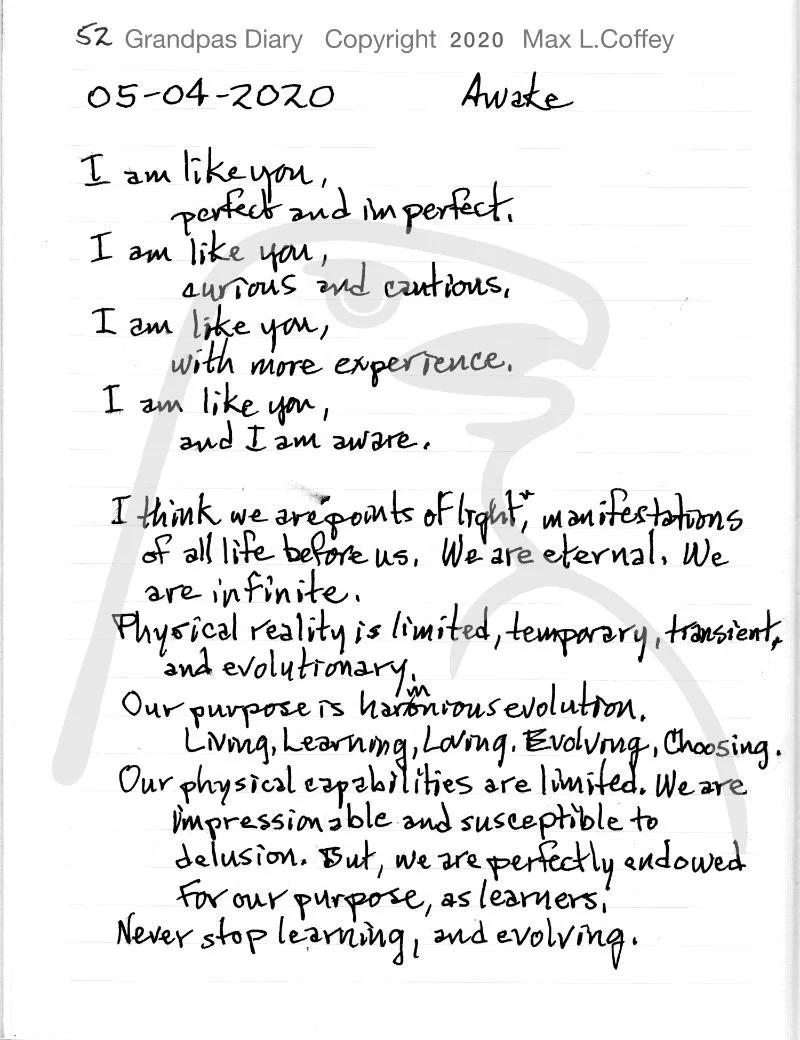 52 Grandpas Diary Copyright 2020 Max L.Coffey
05-04-2020 Awake
I am like you,
perfect and imperfect.
I am like you,
curious and cautious,
I am like you,
with more experience.
I am like you,
and I am aware.
I think we are "points of light", manifestations
of all life before us. We are eternal. We
are infinite.
Physical reality is limited, temporary, transient,
and evolutionary.
Our purpose is harmonious evolution.
Living, Learning, Loving, Evolving, Choosing.
Our physical capabilities are limited. We are
impressionable and susceptible to
delusion. But, we are perfectly endowed
for our purpose, as learners.
Never stop learning, and evolving.